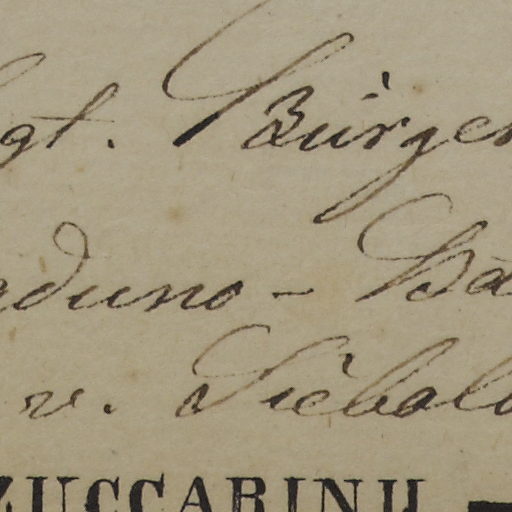 gt. Bürger
duno - Ba
v. Siebold
ZUCCARINII